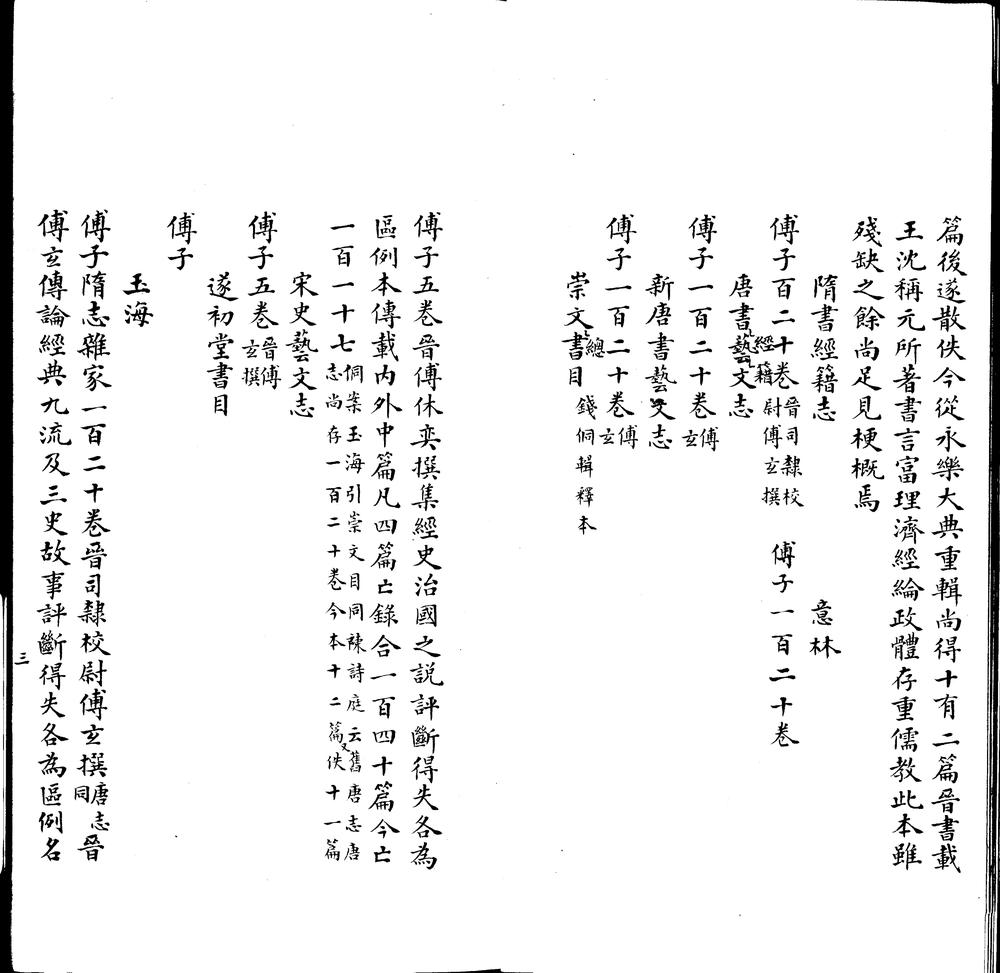 篇後遂散佚今從永樂大典重輯尚得十有二篇晉書載
王沈稱元所著書言富理濟經綸政體存重儒教此本雖
殘缺之餘尚足見梗概焉
隋書經籍志 意林
傅子百二十卷晉司隸校尉傅玄撰 傅子一百二十卷
唐書經籍藝文志
傅子一百二十卷傅玄
新唐書藝文志
傅子一百二十卷傅玄
崇文總書目 錢侗輯釋本
傅子五卷晉傅休奕撰集經史治國之說評斷得失各為
區例本傳載內外中篇凡四篇亡錄合一百四十篇今亡
一百一十七侗案玉海引崇文目同陳詩庭云舊唐志唐志尚存一百二十卷今本十二篇又佚十一篇
宋史藝文志
傅子五卷晉傅玄撰
遂初堂書目
傅子
玉海
傅子隋志雜家一百二十卷晉司隸校尉傅玄撰唐志同晉
傅玄傳論經典九流及三史故事評斷得失各為區例名
三